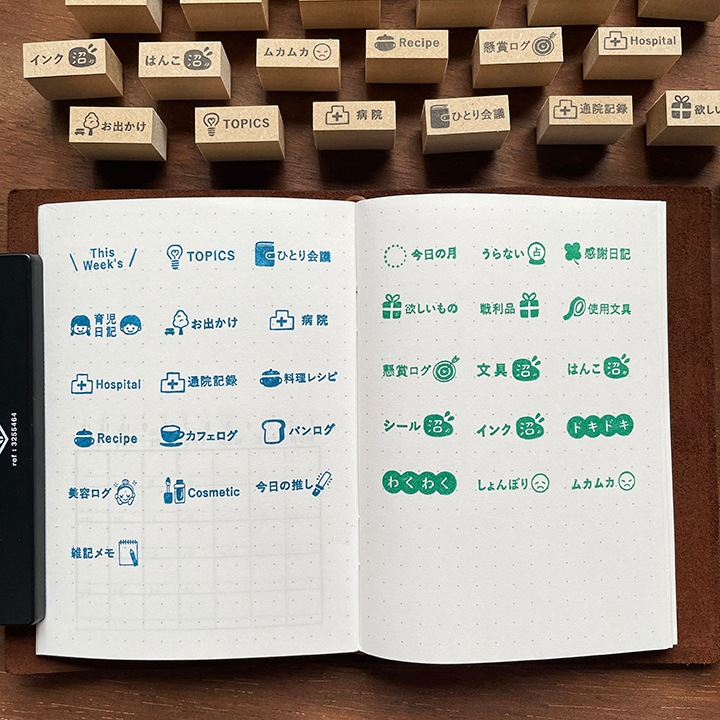 インク沼
はんこ沼
ムカムカ
Recipe
懸賞ログ
Hospital
お出かけ
TOPICS
病院
ひとり会議
通院記録
欲しい
ref : 3255464
This
Week's
TOPICS
ひとり会議
育児
日記
お出かけ
病院
Hospital
通院記録
料理レシピ
Recipe
カフェログ
パンログ
美容ログ
Cosmetic
今日の推し
雑記メモ
今日の月
うらない占
感謝日記
欲しいもの
戦利品
使用文具
懸賞ログ
文具沼
はんこ沼
シール沼
インク沼
ドキドキ
わくわく
しょんぼり
ムカムカ